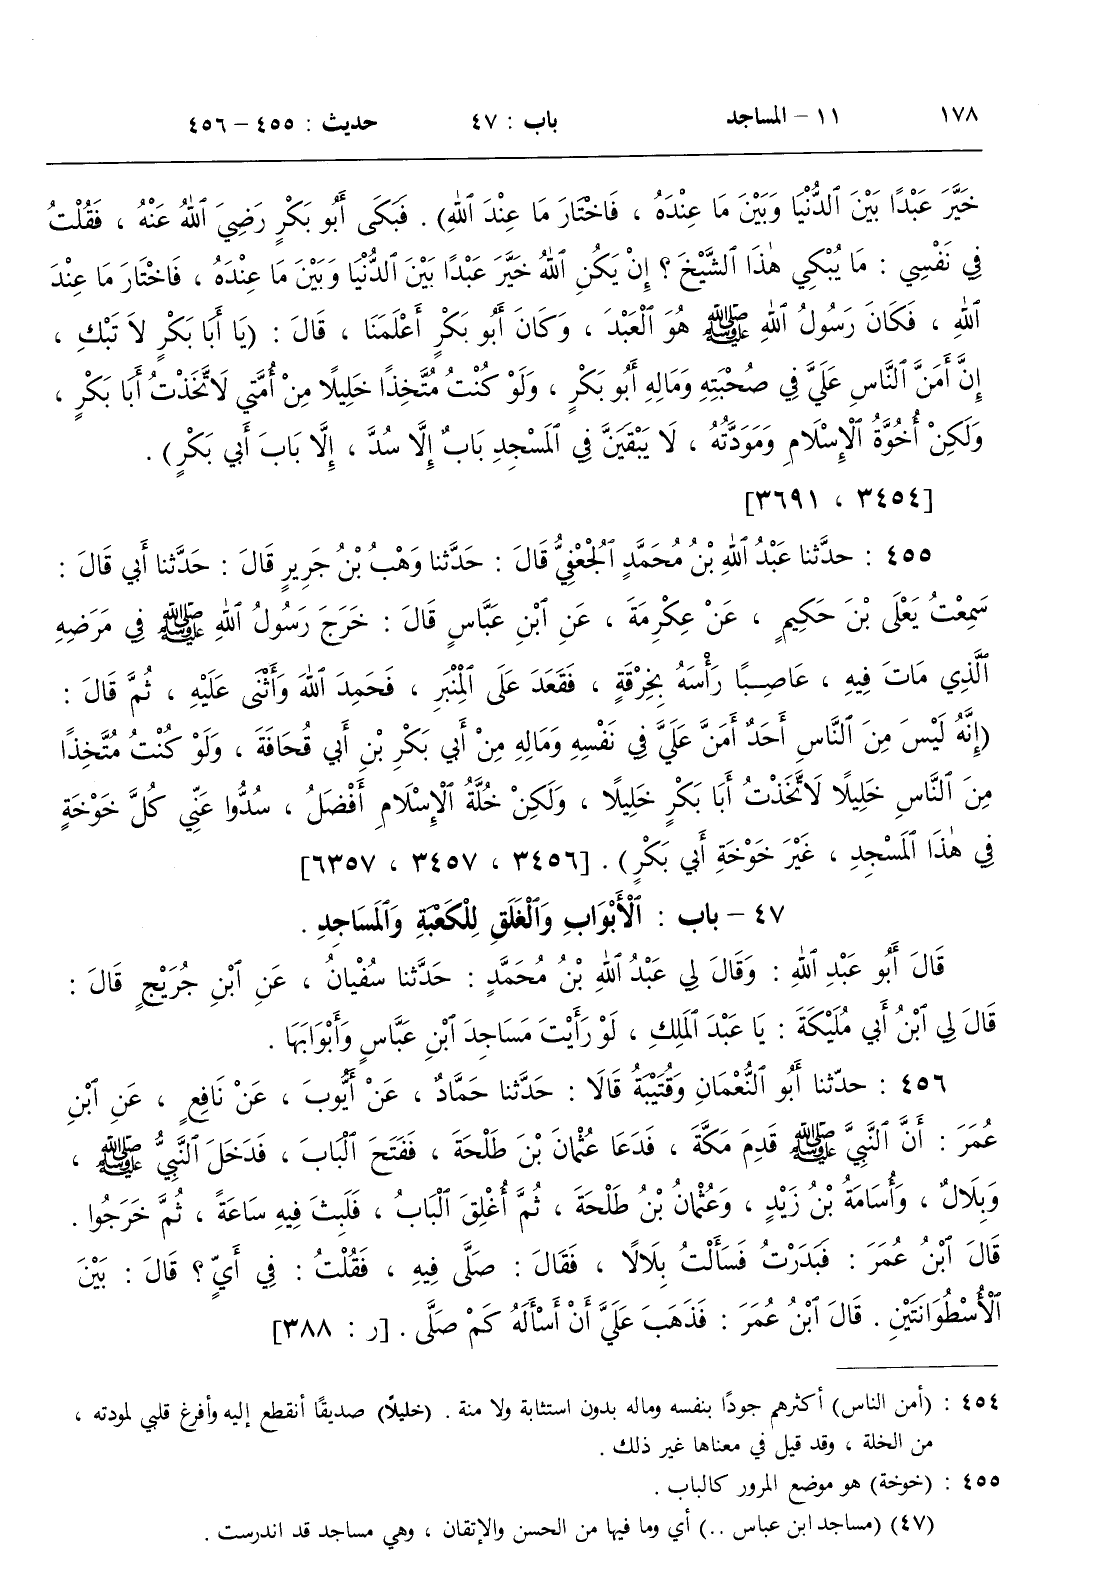 ١٧٨ ١١ – المساجد باب : ٤٧ حديث : ٤٥٥ – ٤٥٦
خَيَّرَ عَبْدًا بَيْنَ ٱلدُّنْيَا وَبَيْنَ مَا عِنْدَهُ ، فَاخْتَارَ مَا عِنْدَ ٱللهِ) . فَبَكَى أَبُو بَكْرٍ رَضِيَ ٱللهُ عَنْهُ ، فَقُلْتُ
فِي نَفْسِي : مَا يُبْكِي هٰذَا ٱلشَّيْخَ ؟ إِنْ يَكُنِ ٱللهُ خَيَّرَ عَبْدًا بَيْنَ ٱلدُّنْيَا وَبَيْنَ مَا عِنْدَهُ ، فَاخْتَارَ مَا عِنْدَ
ٱللهِ ، فَكَانَ رَسُولُ ٱللهِ ﷺ هُوَ ٱلْعَبْدَ ، وَكَانَ أَبُو بَكْرٍ أَعْلَمَنَا ، قَالَ : (يَا أَبَا بَكْرٍ لَا تَبْكِ ،
إِنَّ أَمَنَّ ٱلنَّاسِ عَلَيَّ فِي صُحْبَتِهِ وَمَالِهِ أَبُو بَكْرٍ ، وَلَوْ كُنْتُ مُتَّخِذًا خَلِيلًا مِنْ أُمَّتِي لَاتَّخَذْتُ أَبَا بَكْرٍ ،
وَلٰكِنْ أُخُوَّةُ ٱلْإِسْلَامِ وَمَوَدَّتُهُ ، لَا يَبْقَيَنَّ فِي ٱلْمَسْجِدِ بَابٌ إِلَّا سُدَّ ، إِلَّا بَابَ أَبِي بَكْرٍ) .
[٣٤٥٤ ، ٣٦٩١]
٤٥٥ : حدّثنا عَبْدُ ٱللهِ بْنُ مُحَمَّدٍ ٱلْجُعْفِيُّ قَالَ : حَدَّثنا وَهْبُ بْنُ جَرِيرٍ قَالَ : حَدَّثنا أَبِي قَالَ :
سَمِعْتُ يَعْلَى بْنَ حَكِيمٍ ، عَنْ عِكْرِمَةَ ، عَنِ ٱبْنِ عَبَّاسٍ قَالَ : خَرَجَ رَسُولُ ٱللهِ ﷺ فِي مَرَضِهِ
ٱلَّذِي مَاتَ فِيهِ ، عَاصِبًا رَأْسَهُ بِخِرْقَةٍ ، فَقَعَدَ عَلَى ٱلْمِنْبَرِ ، فَحَمِدَ ٱللهَ وَأَثْنَى عَلَيْهِ ، ثُمَّ قَالَ :
(إِنَّهُ لَيْسَ مِنَ ٱلنَّاسِ أَحَدٌ أَمَنَّ عَلَيَّ فِي نَفْسِهِ وَمَالِهِ مِنْ أَبِي بَكْرِ بْنِ أَبِي قُحَافَةَ ، وَلَوْ كُنْتُ مُتَّخِذًا
مِنَ ٱلنَّاسِ خَلِيلًا لَاتَّخَذْتُ أَبَا بَكْرٍ خَلِيلًا ، وَلٰكِنْ خُلَّةُ ٱلْإِسْلَامِ أَفْضَلُ ، سُدُّوا عَنِّي كُلَّ خَوْخَةٍ
فِي هٰذَا ٱلْمَسْجِدِ ، غَيْرَ خَوْخَةِ أَبِي بَكْرٍ) . [٣٤٥٦ ، ٣٤٥٧ ، ٦٣٥٧]
٤٧ – باب : ٱلْأَبْوَابِ وَٱلْغَلَقِ لِلْكَعْبَةِ وَٱلْمَسَاجِدِ .
قَالَ أَبُو عَبْدِ ٱللهِ : وَقَالَ لِي عَبْدُ ٱللهِ بْنُ مُحَمَّدٍ : حَدَّثنا سُفْيَانُ ، عَنِ ٱبْنِ جُرَيْجٍ قَالَ :
قَالَ لِي ٱبْنُ أَبِي مُلَيْكَةَ : يَا عَبْدَ ٱلْمَلِكِ ، لَوْ رَأَيْتَ مَسَاجِدَ ٱبْنِ عَبَّاسٍ وَأَبْوَابَهَا .
٤٥٦ : حدّثنا أَبُو ٱلنُّعْمَانِ وَقُتَيْبَةُ قَالَا : حَدَّثنا حَمَّادٌ ، عَنْ أَيُّوبَ ، عَنْ نَافِعٍ ، عَنِ ٱبْنِ
عُمَرَ : أَنَّ ٱلنَّبِيَّ ﷺ قَدِمَ مَكَّةَ ، فَدَعَا عُثْمَانَ بْنَ طَلْحَةَ ، فَفَتَحَ ٱلْبَابَ ، فَدَخَلَ ٱلنَّبِيُّ ﷺ ،
وَبِلَالٌ ، وَأُسَامَةُ بْنُ زَيْدٍ ، وَعُثْمَانُ بْنُ طَلْحَةَ ، ثُمَّ أُغْلِقَ ٱلْبَابُ ، فَلَبِثَ فِيهِ سَاعَةً ، ثُمَّ خَرَجُوا .
قَالَ ٱبْنُ عُمَرَ : فَبَدَرْتُ فَسَأَلْتُ بِلَالًا ، فَقَالَ : صَلَّى فِيهِ ، فَقُلْتُ : فِي أَيٍّ ؟ قَالَ : بَيْنَ
ٱلْأُسْطُوَانَتَيْنِ . قَالَ ٱبْنُ عُمَرَ : فَذَهَبَ عَلَيَّ أَنْ أَسْأَلَهُ كَمْ صَلَّى . [ر : ٣٨٨]
٤٥٤ : (أمن الناس) أكثرهم جودًا بنفسه وماله بدون استثابة ولا منة . (خليلاً) صديقًا أنقطع إليه وأفرغ قلبي لمودته ،
من الخلة ، وقد قيل في معناها غير ذلك .
٤٥٥ : (خوخة) هو موضع المرور كالباب .
(٤٧) (مساجد ابن عباس ..) أي وما فيها من الحسن والإتقان ، وهي مساجد قد اندرست .